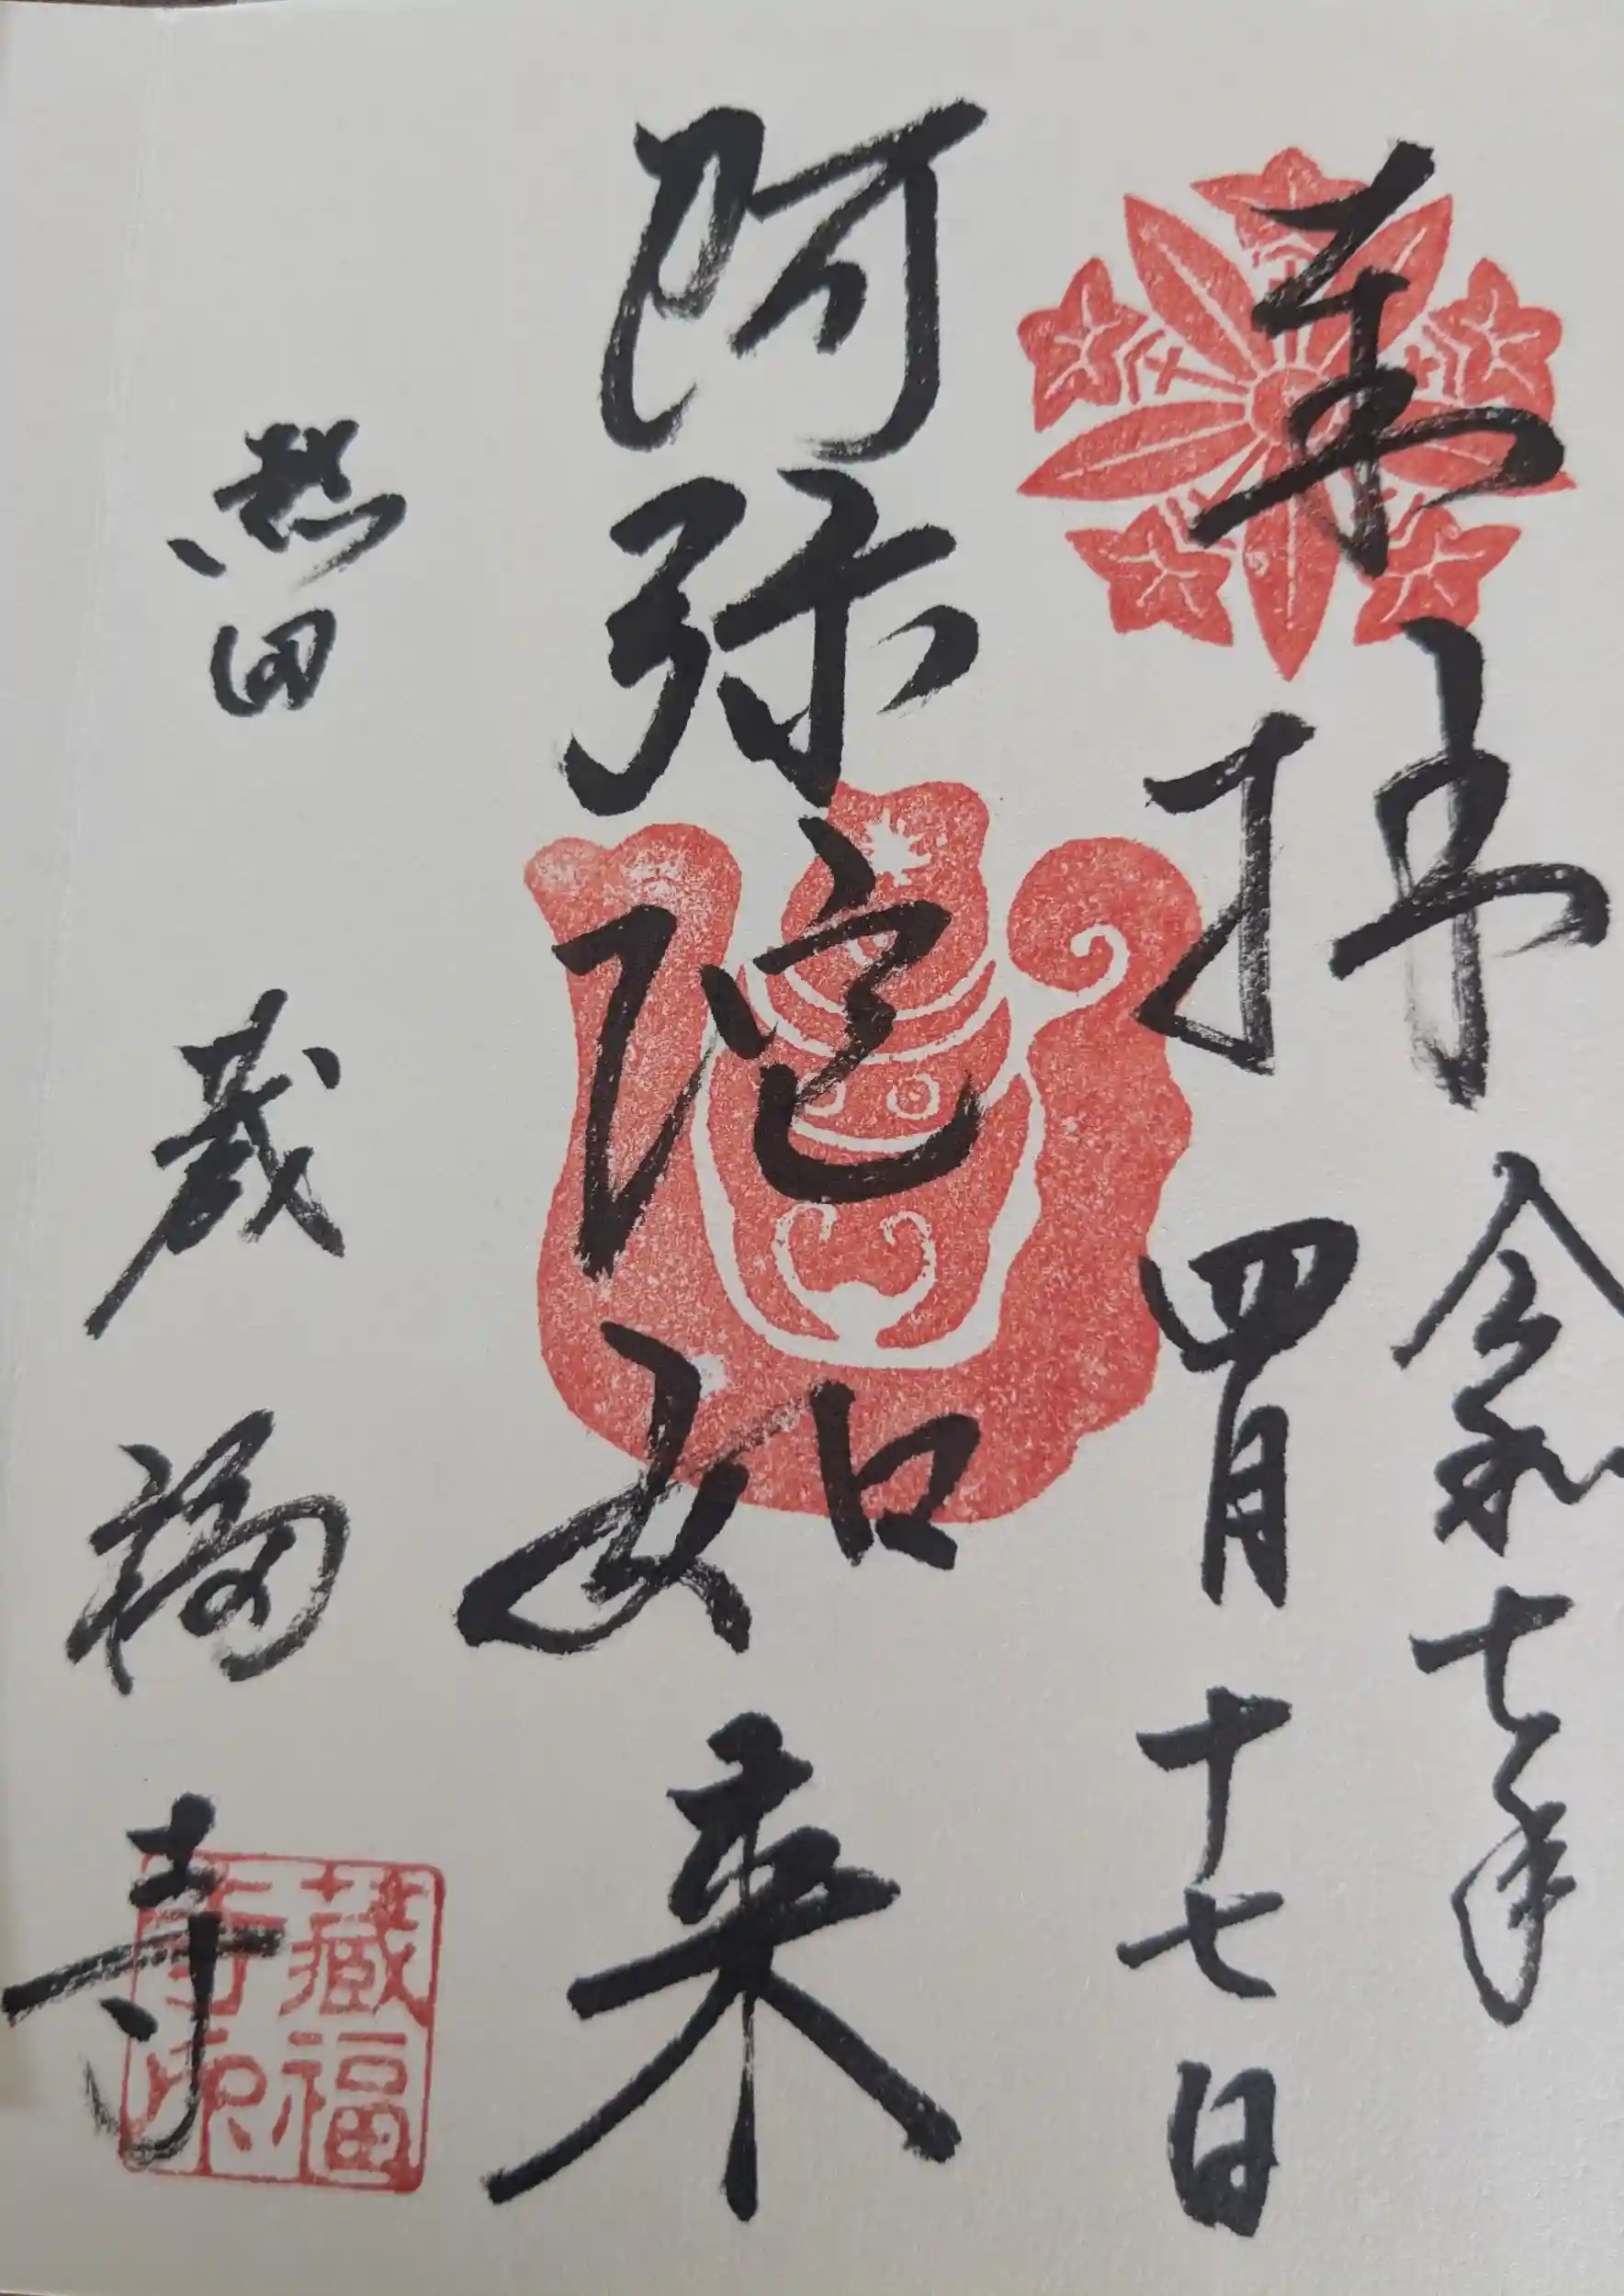 奉拝
令和七年
四月十七日
阿弥陀如来
熱田
蔵福寺
藏福
寺印